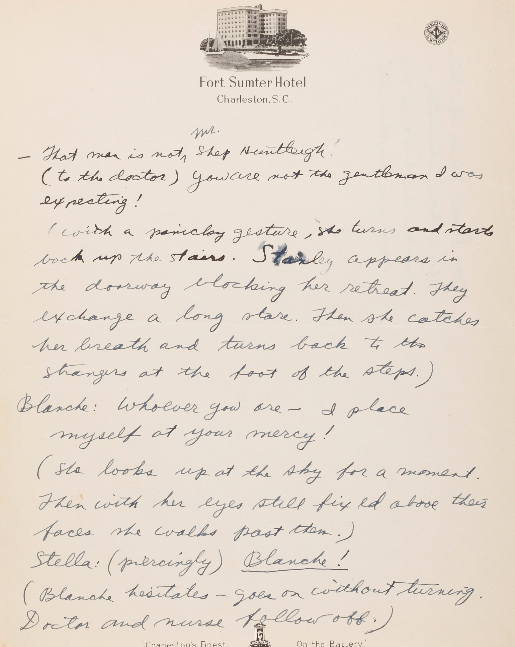 Fort Sumter Hotel
Charleston, S.C.
Mr.
— That man is not, Shep Huntleigh!
(to the doctor) You are not the gentleman I was
expecting!
(with a panicky gesture, she turns and starts
back up the stairs. Stanley appears in
the doorway blocking her retreat. They
exchange a long stare. Then she catches
her breath and turns back to the
strangers at the foot of the steps.)
Blanche: Whoever you are — I place
myself at your mercy!
(She looks up at the sky for a moment.
Then with her eyes still fixed above their
faces she walks past them.)
Stella: (piercingly) Blanche!
(Blanche hesitates — goes on without turning.
Doctor and nurse follow off.)
Charleston's Finest On the Battery